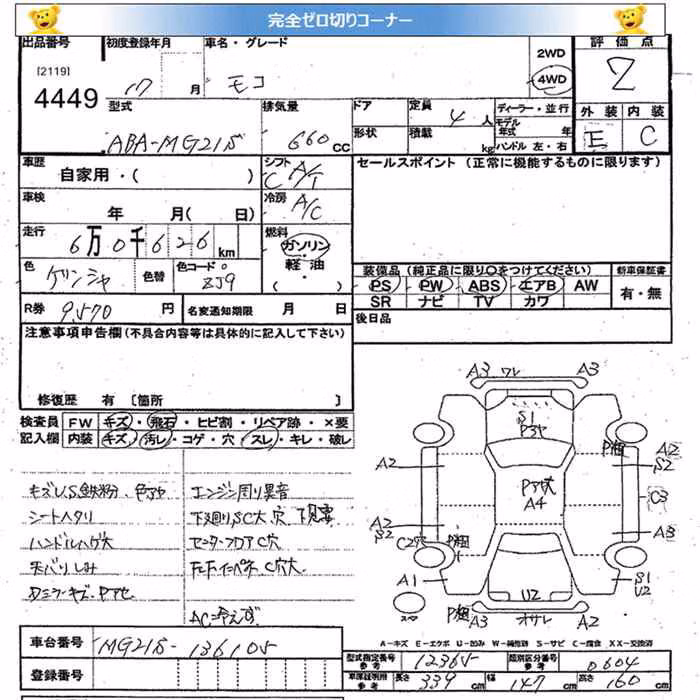 完全ゼロ切りコーナー
出品番号 初度登録年月 車名・グレード 2WD 評価点
[2119] 4449 17 月 モコ 4WD 2
型式 排気量 ドア 定員 4人 ディーラー・並行 外装 内装
ABA-MG21S 660cc 形状 積載 kg モデル年式 年 ハンドル 左・右 E C
車歴 シフト セールスポイント (正常に機能するものに限ります)
自家用・( ) C A/T
車検 冷房
年 月( 日) A/C
走行 燃料
6万0千626km ガソリン・
色 色替 色コード 軽油・
ZJ9 ( ) 装備品 (純正品に限り○をつけてください) 新車保証書
PS PW ABS エアB AW 有・無
R券 9,570円 名変通知期限 月 日 SR ナビ TV カワ
注意事項申告欄(不具合内容等は具体的に記入して下さい) 後日品
修復歴 有〔箇所 〕
検査員 FW キズ・飛石・ヒビ割・リペア跡・×要
記入欄 内装 キズ・汚レ・コゲ・穴・スレ・キレ・破レ
キズUS鉄粉・色アセ エンジン周り異音
シートヘタリ 下廻りSC大 穴 下見要
ハンドルハゲ大 センターフロアC穴
天バリしみ
AC冷えず
A3 ワレ A3
S1
A2 A2
S2
A4 C3
A2
S2 A3
C2穴
A1 S1
U2
U2
スペア A3 オサレ A2
A-キズ E-エクボ U-凹み W-補修跡 S-サビ C-腐食 XX-交換済
車台番号 MG21S-136105
型式指定番号 参考 12365 類別区分番号 参考 0604
登録番号 車庫証明用 参考 長さ 339cm 幅 147cm 高さ 160cm